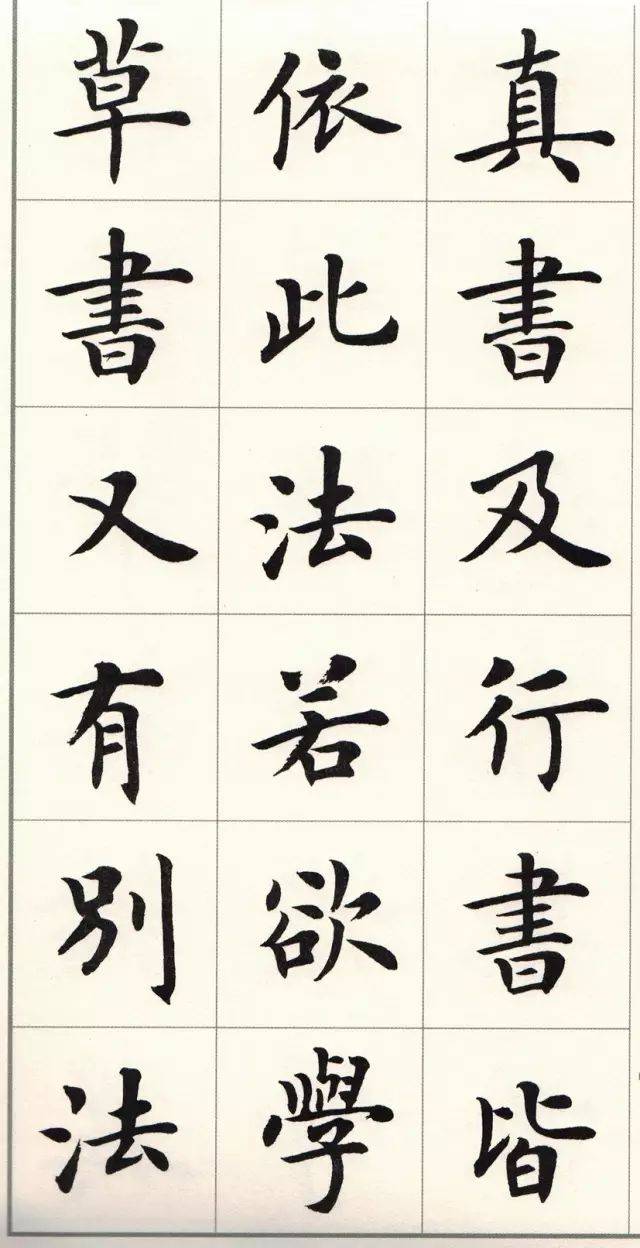 真書及行書皆
依此法若欲學
草書又有別法